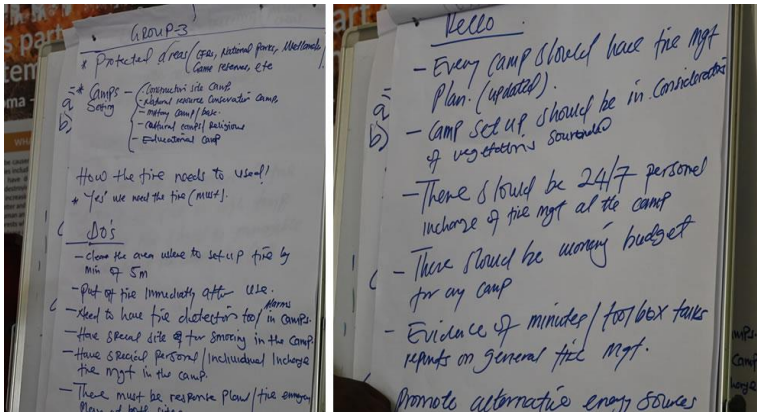 GROUP-3
* Protected areas (CFRs, National parks, Wetlands/
Game reserves, etc
a) = * Camps – Construction site camp
Setting - Natural resource Conservation Camp
b) - military camp/base.
- cultural camps/Religious
- Educational camp
How the fire needs to used!
* Yes' we need the fire (must).
DO's
- clean the area where to set-up fire by
min of 5m
- put off fire immediately after use.
- Need to have fire detectors tool/Alarms in camps.
- Have special site for smoking in the camp.
- Have special persons/Individual Incharge
fire mgt in the camp.
- There must be response plan/fire
Hello
- Every camp should have fire mgt
plan. (updated).
- camp set up should be in consideration
of vegetations
- There should be 24/7 personel
incharge of fire mgt at the camp
- There should be budget
for any camp
- Evidence of minutes/toolbox talks
reports on general fire mgt.
promote alternative energy sources
part
tem
oma -
WHA
part
camp